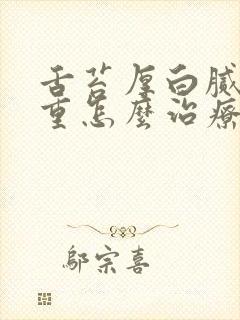 舌苔厚白腻
重怎麽治療
鄔宗喜